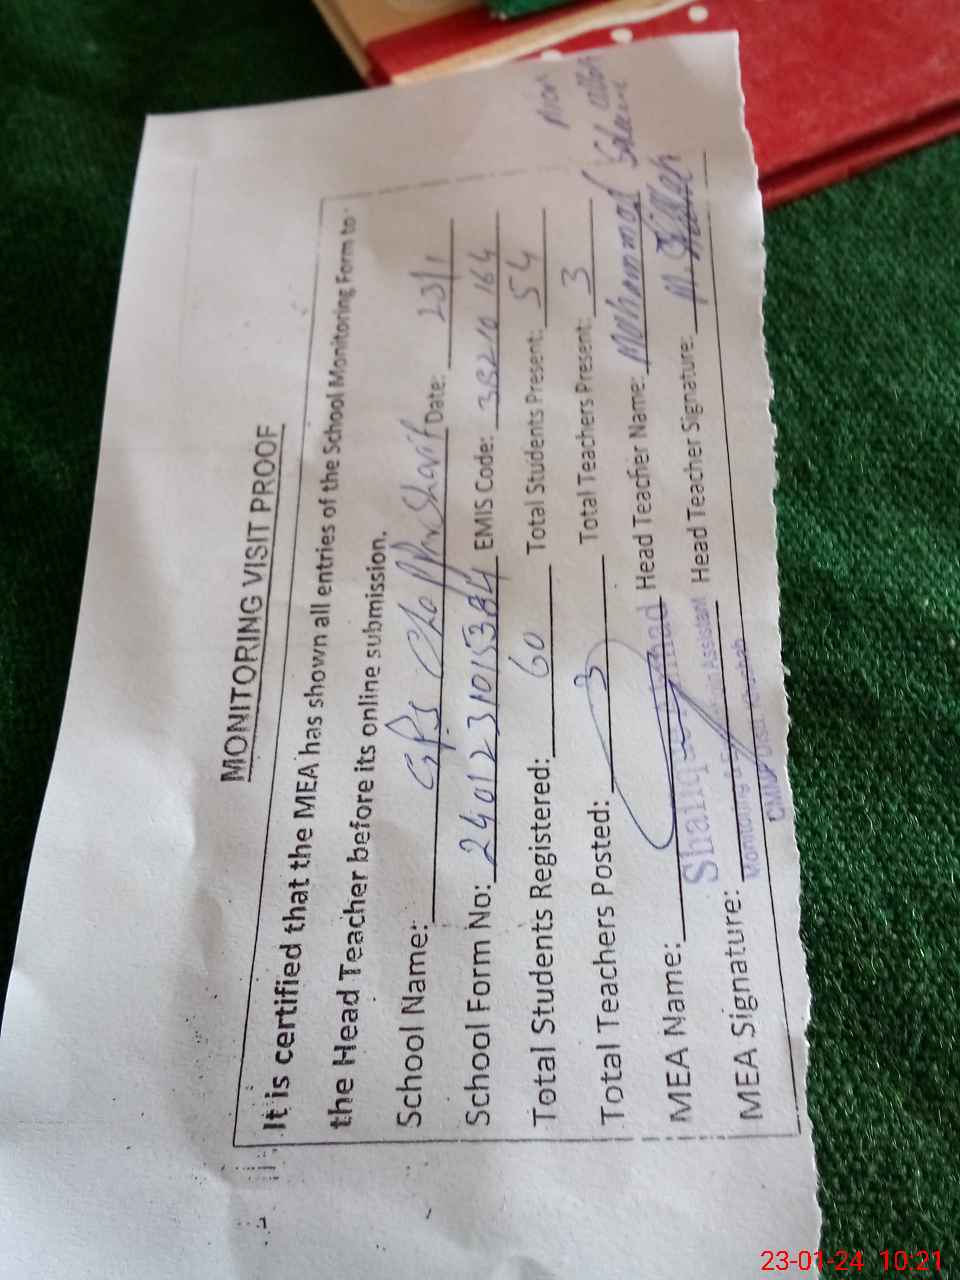 MONITORING VISIT PROOF
It is certified that the MEA has shown all entries of the School Monitoring Form to
the Head Teacher before its online submission.
School Name: GPS Sharif Date: 23/1
School Form No: 2401231015384 EMIS Code: 38210164
Total Students Registered: 60 Total Students Present: 54
Total Teachers Posted: 3 Total Teachers Present: 3
MEA Name: Head Teacher Name: Mohammad
MEA Signature: Head Teacher Signature: M.
Monitoring Assistant
CMIU
23-01-24 10:21